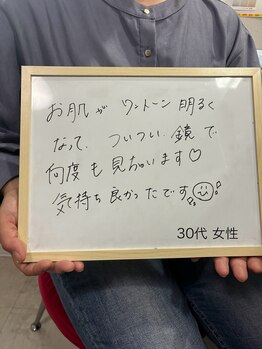 お肌が ワントーン 明るく
なって、ついつい 鏡で
何度も見ちゃいます♡
気持ち良かったです
30代 女性